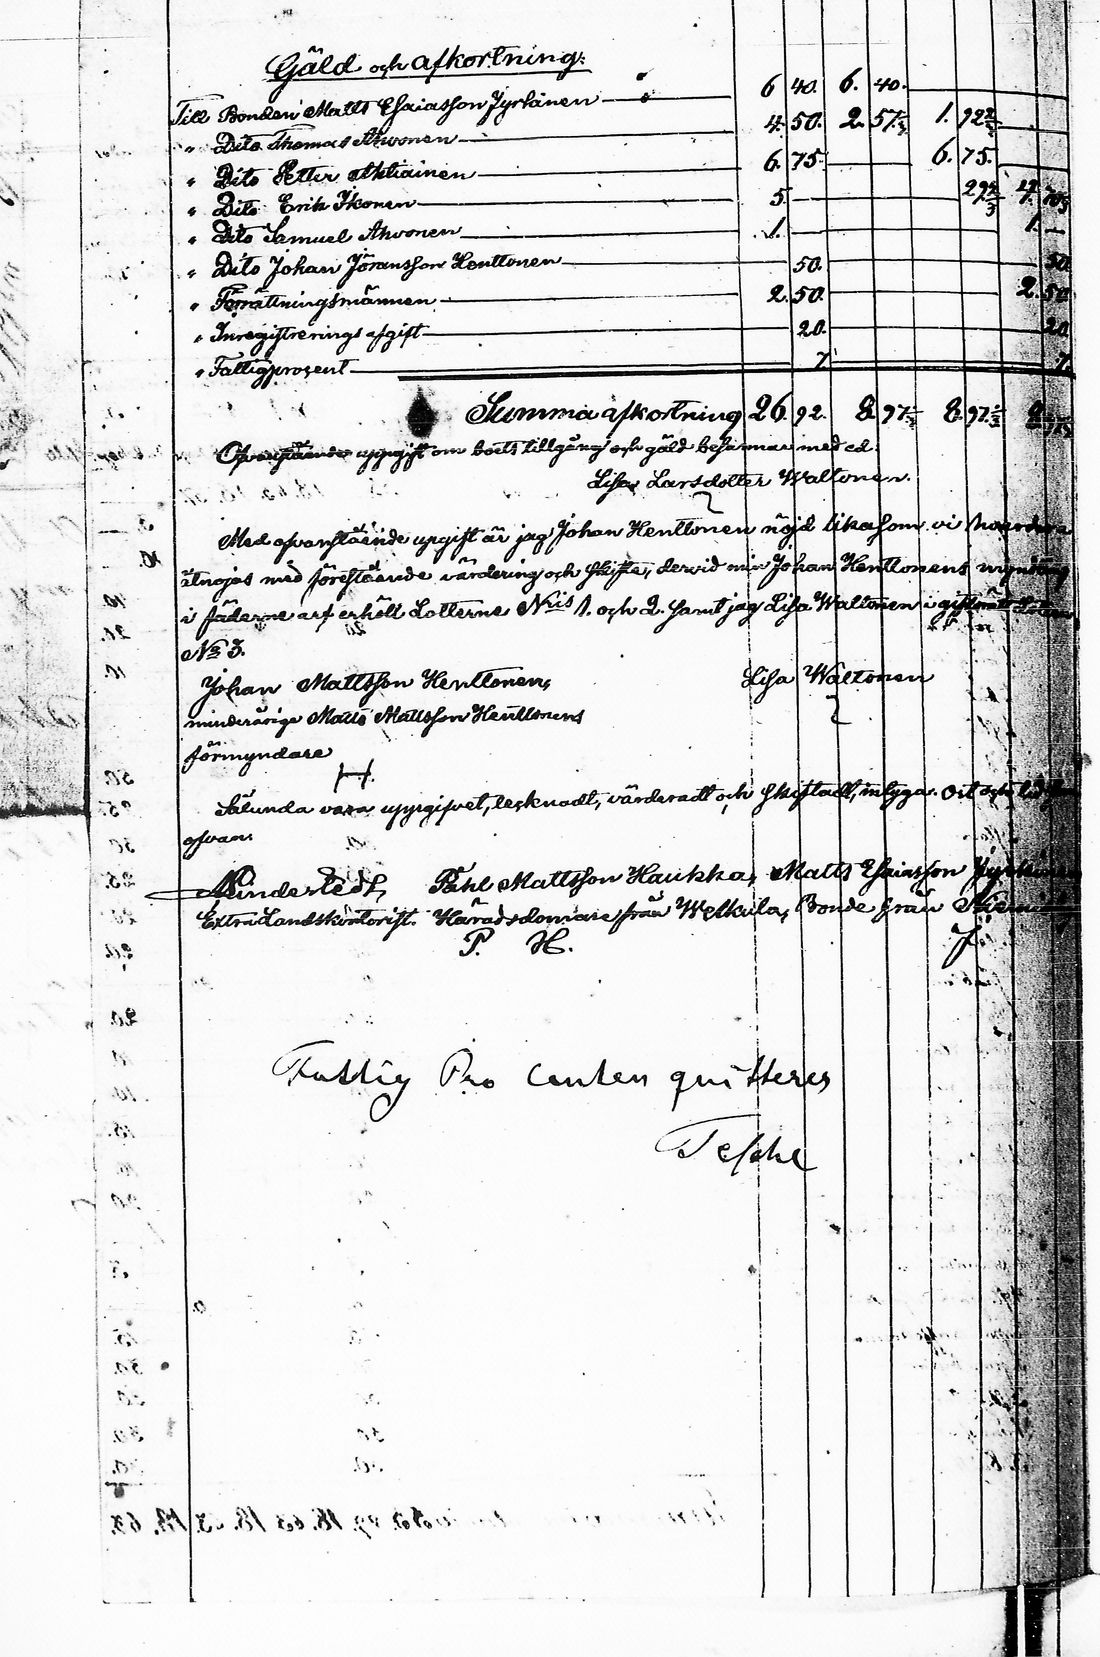 Gäld och afkortning:
Till Bonden Matts Esaiasson Jyrkänen 6 40. 6. 40.
" Dito Thomas Ahvonen 4. 50. 2. 57 1/3 1. 92 2/3
" Dito Petter Ahtiainen 6. 75 6. 75.
" Dito Erik Ikonen 5. 29 2/3 4. 70 1/3
" Dito Samuel Ahvonen 1. 1.
" Dito Johan Jöransson Henttonen 50. 50
" Förrättningsmännen 2. 50. 2. 50
" Inregistrerings afgift 20. 20
" Fattigprosent 7 7.
Summa afkortning 26. 92. 8. 97 1/3 8. 97 1/3 8. 97 1/3
Ofvanstående uppgift om boets tillgång och gäld besannas med ed.
Lisa Larsdotter Waltonen.
Med ofvanstående upgift är jag Johan Henttonen nöjd likasom vi hvardera
åtnöjas med förestående värdering och skifte, dervid min Johan Henttonens myndling
i fäderne arf erhölt Lotterne Nris 1. och 2. samt jag Lisa Waltonen i giftorätt Lotten
No 3.
Johan Mattsson Henttonen, Lisa Waltonen
minderårige Matts Mattsson Henttonens
förmyndare
H.
Sålunda vara uppgifvet, tecknadt, värderadt och skiftadt, intyga. Ort och tid som
ofvan.
Pehl Mattsson Haukka, Matts Esaiasson Jyrkänen
Extra Landskontorist. Häradsdomare från Welkula, Bonde från
P. H. J.
Fattig Pro Centen quitteres